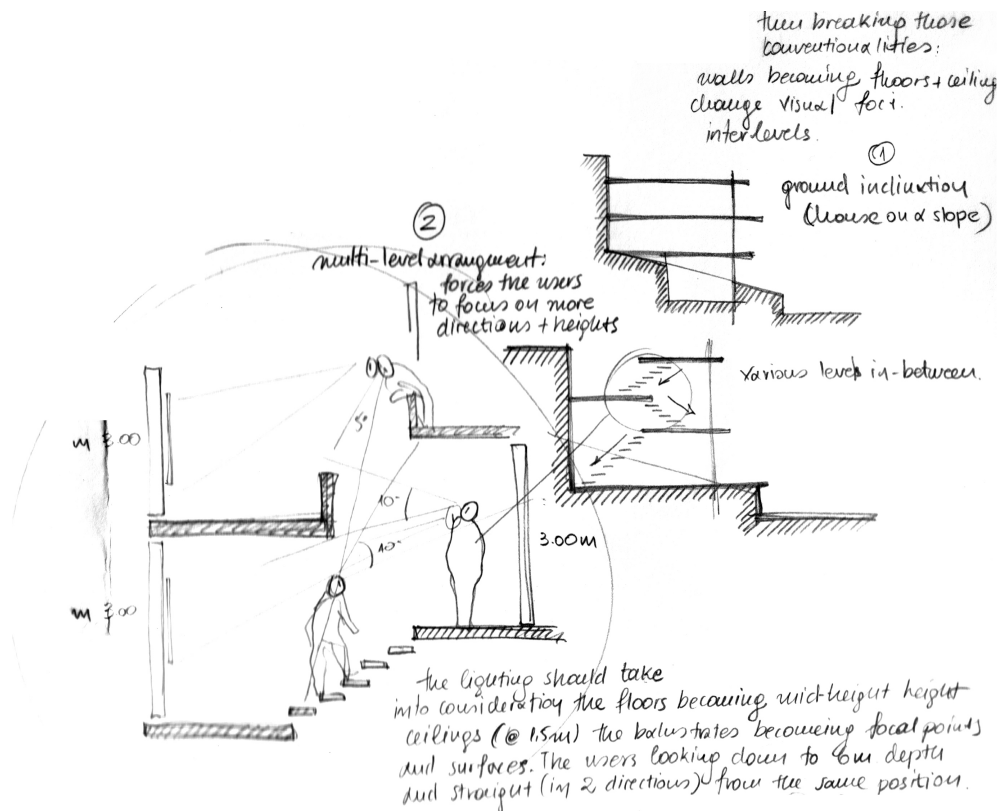 then breaking those
conventionalities:
walls becoming floors + ceiling
change visual foci.
interlevels.
1
ground inclination
(house on a slope)
2
multi-level arrangment:
forces the users
to focus on more
directions + heights
various levels in-between.
10°
10°
3.00m
the lighting should take
into consideration the floors becoming mid-height height
ceilings (@ 1,5m) the balustrates becomeing focal points
and surfaces. The users looking down to 6m depth
and straight (in 2 directions) from the same position.